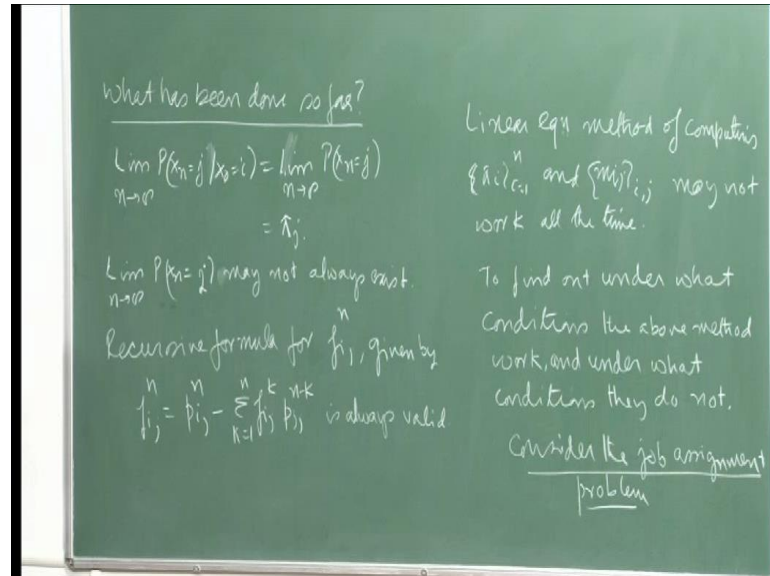 What has been done so far?
Lim P(Xn=j / X0=i) = Lim P(Xn=j)
n→∞ n→∞
= πj.
Lim P(Xn=j) may not always exist.
n→∞
Recursive formula for f_ij^n, given by
f_ij^n = p_ij^n - Σ_{k=1}^n f_ij^k p_jj^{n-k} is always valid
Linear eqn method of computing
{πi}_{i=1}^n and {mij}_{i,j} may not
work all the time.
To find out under what
conditions the above method
work, and under what
conditions they do not.
Consider the job assignment
problem